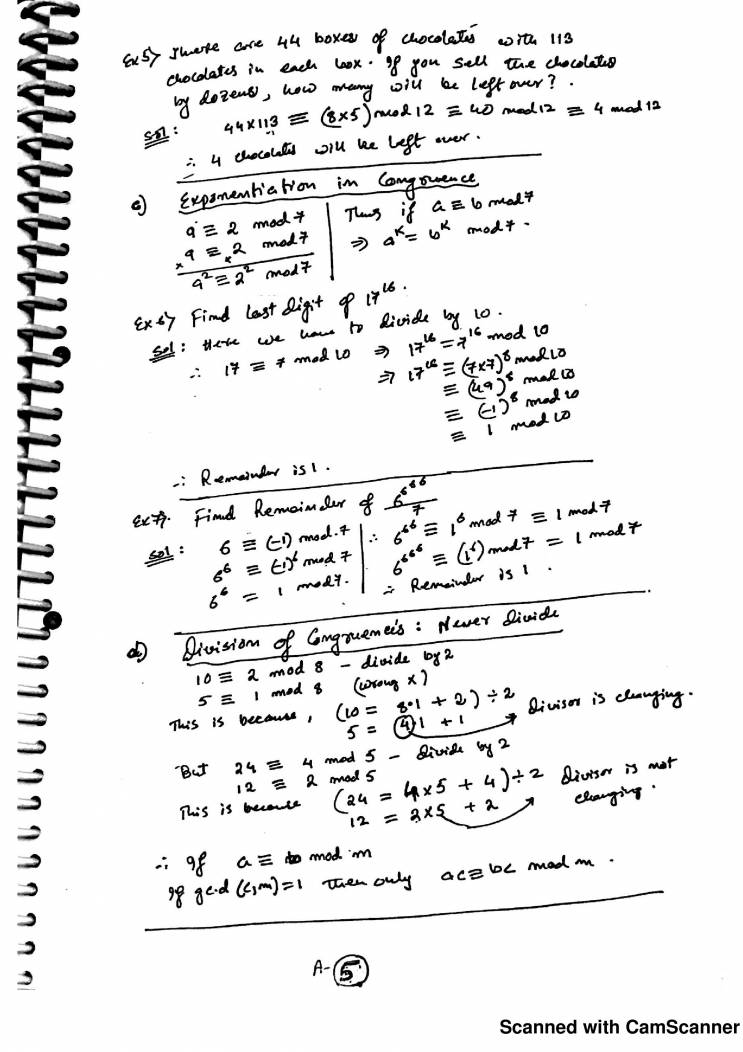 Ex 5) There are 44 boxes of chocolates with 113
chocolates in each box. If you sell the chocolates
by dozens, how many will be left over?.
Sol: 44x113 ≡ (8x5) mod 12 ≡ 40 mod 12 ≡ 4 mod 12
∴ 4 chocolates will be left over.
c) Exponentiation in Congruence
9 ≡ 2 mod 7
x 9 ≡ x 2 mod 7
9² ≡ 2² mod 7
Thus if a ≡ b mod 7
⇒ aᴷ = bᴷ mod 7.
Ex 6) Find last digit of 17¹⁶.
Sol: Here we have to divide by 10.
∴ 17 ≡ 7 mod 10 ⇒ 17¹⁶ = 7¹⁶ mod 10
⇒ 17¹⁶ ≡ (7x7)⁸ mod 10
≡ (49)⁸ mod 10
≡ (-1)⁸ mod 10
≡ 1 mod 10
∴ Remainder is 1.
Ex 7). Find Remainder of 6⁶⁶⁶ / 7
Sol: 6 ≡ (-1) mod 7
6⁶ ≡ (-1)⁶ mod 7
6⁶ = 1 mod 7.
∴ 6⁶⁶ ≡ 1⁶ mod 7 ≡ 1 mod 7
6⁶⁶⁶ ≡ (1⁶) mod 7 = 1 mod 7
∴ Remainder is 1.
d) Division of Congruencies: Never divide
10 ≡ 2 mod 8 - divide by 2
5 ≡ 1 mod 8 (wrong x)
This is because, (10 = 8·1 + 2) ÷ 2
5 = (4)1 + 1 Divisor is changing.
But 24 ≡ 4 mod 5 - divide by 2
12 ≡ 2 mod 5
This is because (24 = 4x5 + 4) ÷ 2 Divisor is not
12 = 2x5 + 2 changing.
∴ If a ≡ b mod m
If gcd (c,m)=1 then only ac ≡ bc mod m.
A-5
Scanned with CamScanner